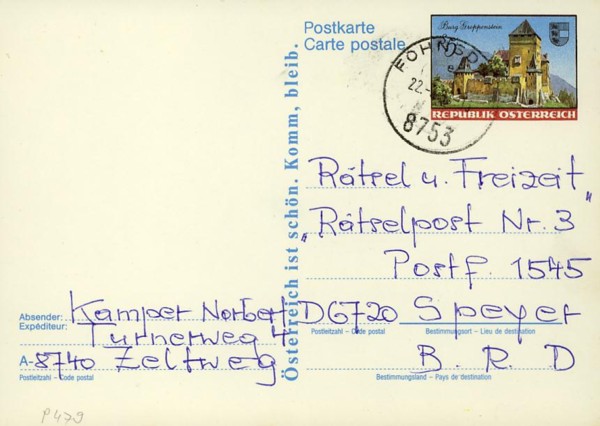 Postkarte
Carte postale
Burg Groppenstein
REPUBLIK ÖSTERREICH
FOHNSD
22.
8753
Österreich ist schön. Komm, bleib.
Rätsel u. Freizeit
"Rätselpost Nr. 3"
Postf. 1545
D6720 Speyer
Postleitzahl – Code postal
Bestimmungsort – Lieu de destination
B. R. D
Bestimmungsland – Pays de destination
Absender: Kamper Norbert
Expéditeur: Turnerweg 4
A-8740 Zeltweg
Postleitzahl – Code postal
P 479